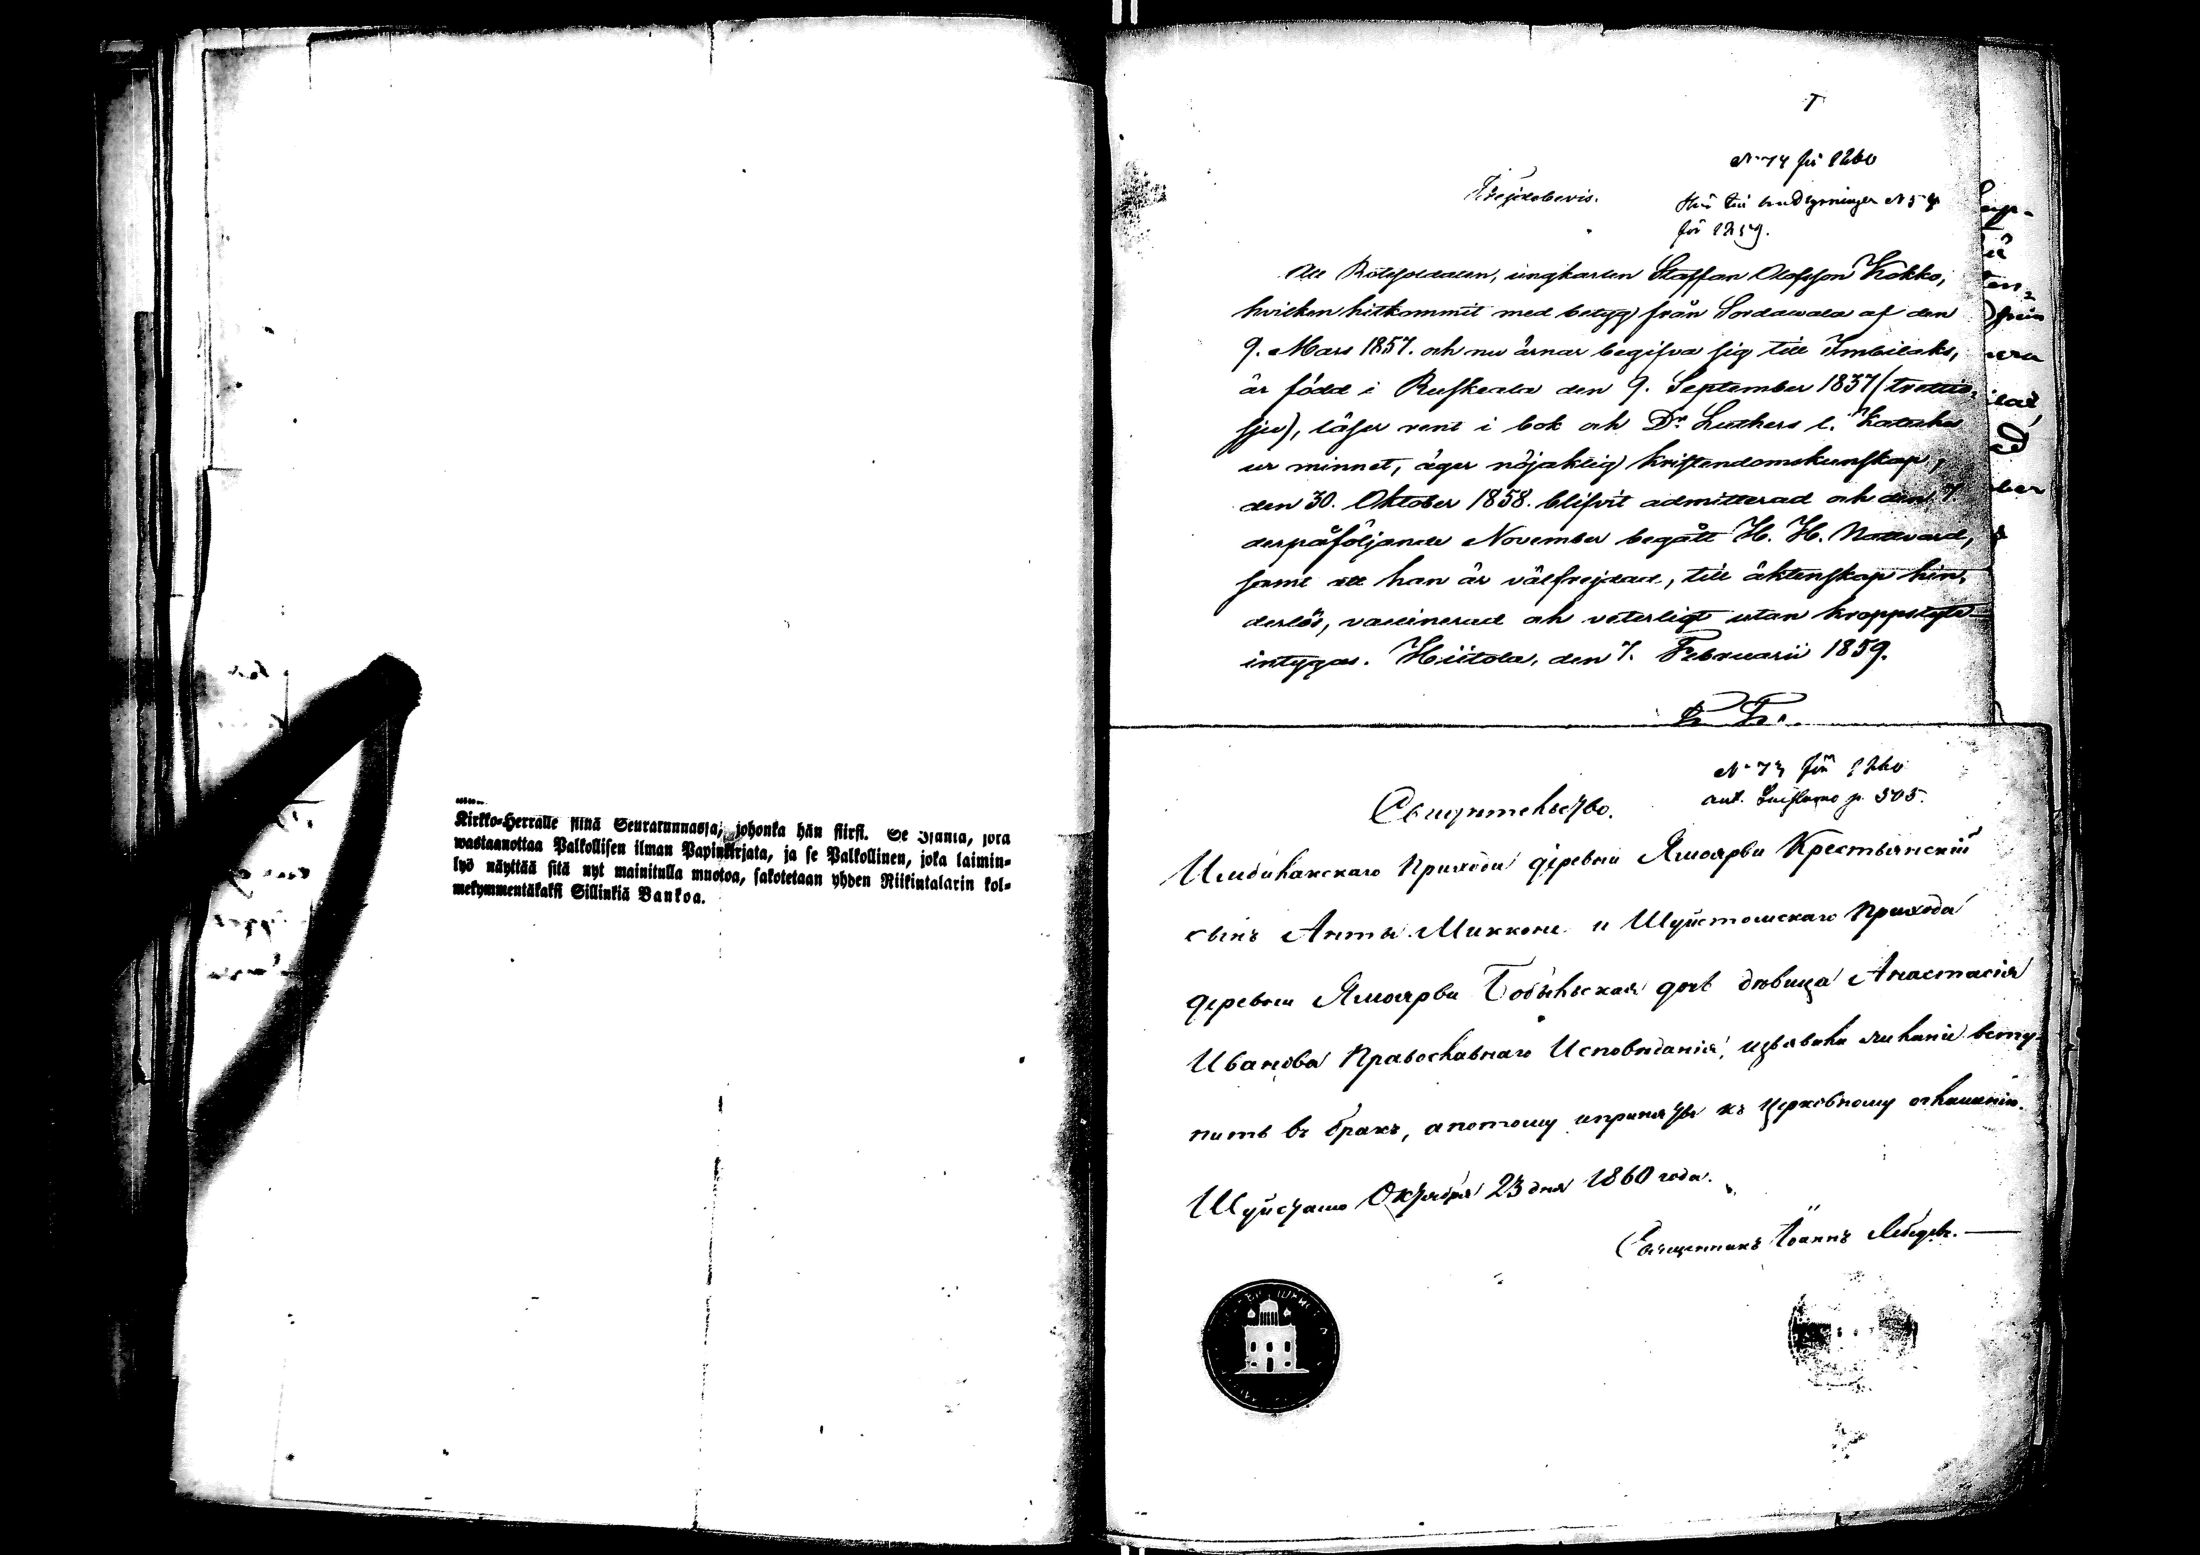 Kirkko-Herralle siinä Seurakunnassa, johonka hän siirsi. Se Isäntä, joka
wastaanottaa Palkollisen ilman Papinkirjata, ja se Palkollinen, joka laimin-
lyö näyttää sitä nyt mainitulla muotoa, sakotetaan yhden Riikintalarin kol-
mekymmentäkaksi Sillinkiä Bankoa.
N:o 74 för 1860
Frejdebevis.
för 1859.
Att Rotesoldaten, ungkarlen Staffan Olofsson Kokko,
hvilken hitkommit med betyg från Sordawala af den
9. Mars 1857. och nu ärnar begifva sig till Imbilaks,
är född i Ruskeala den 9. September 1837 (trettio-
sju), läser rent i bok och Dr. Luthers l. Kateches
ur minnet, äger nöjaktig kristendomskunskap,
den 30. Oktober 1858. blifvit admitterad och den 7
derpåföljande November begått H. H. Nattvard,
samt att han är välfrejdad, till äktenskap hin-
derlös, vaccinerad och veterligt utan kroppslyte
intygas. Hiitola, den 7. Februarii 1859.
N:o 73 för 1860
p. 505.
Свидѣтельство.
Имбилакскаго прихода деревни Ямоярви Крестьянскій
сынъ Анты Микконе и Шуйстомскаго прихода
деревни Ямоярви Бобыльская дочь дѣвица Анастасія
Иванова Православнаго Исповѣданія, изъявили желаніе всту-
пить въ бракъ, а потому къ церковному оглашенію.
Шуйстамо Октября 23 дня 1860 года.
Священникъ Іоаннъ Лебедевъ.